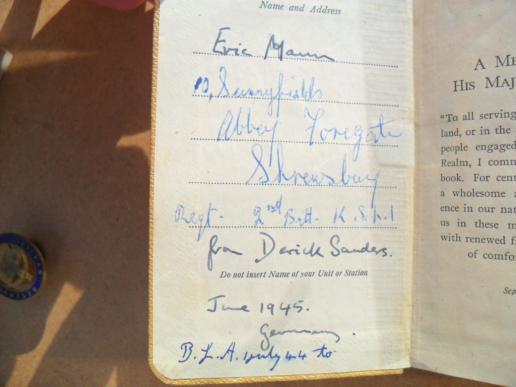 Name and Address
Eric Mann
10, Sunnyfields
Abbey Foregate
Shrewsbury
Regt. 2nd Batt. K.S.L.I
from Derick Sanders.
Do not insert Name of your Unit or Station
June 1945.
Germany.
B.L.A. July 44 to
A ME
HIS MAJ
"To all serving
land, or in the
people engaged
Realm, I comm
book. For cent
a wholesome a
ence in our nat
us in these m
with renewed f
of comfo
Sep